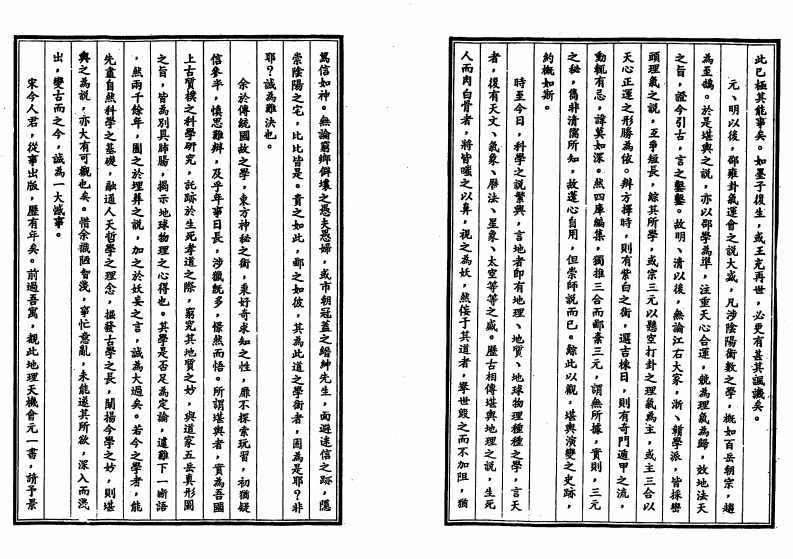 此已極其能事矣。如墨子復生，或王充再世，必更有甚其諷議矣。
元、明以後，邵雍卦氣運會之說大盛，凡涉陰陽術數之學，概如百岳朝宗，趨
為至鵠。於是堪輿之說，亦以邵學為準，注重天心合運，競為理氣為歸，效地法天
之旨，證今引古，言之鑿鑿。故明、清以後，無論江右大家，浙、贛學派，皆採巒
頭理氣之說，互爭短長，綜其所學，或宗三元以懸空打卦之理氣為主，或主三合以
天心正運之形勝為依。辨方擇時，則有紫白之術，選吉棟日，則有奇門遁甲之流，
動輒有忌，諱莫如深。然四庫編集，獨推三合而鄙棄三元，謂無所據，實則，三元
之秘，雋非清儒所知，故蓬心自用，但崇師說而已。綜此以觀，堪輿演變之史跡，
約概如斯。
時至今日，科學之說繁興，言地者即有地理、地質、地球物理種種之學，言天
者，復有天文、氣象、曆法、星象、太空等等之盛。歷古相傳堪輿地理之說，生死
人而肉白骨者，將皆嗤之以鼻，視之為妖，然侫于其道者，舉世毀之而不加阻，猶
篤信如神。無論窮鄉僻壤之愚夫愚婦，或市朝冠蓋之縉紳先生，面避迷信之跡，隱
崇陰陽之宅，比比皆是。貴之如此，鄙之如彼，其為此道之學術者，固為是耶？非
耶？誠為難決也。
余於傳統國故之學，東方神秘之術，秉好奇求知之性，靡不探索玩習，初猶疑
信參半，慎思難辨，及乎年事日長，涉獵既多，憬然而悟。所謂堪輿者，實為吾國
上古質樸之科學研究，託跡於生死孝道之際，窮究其地質之妙，與道家五岳真形圖
之旨，皆為別具肺腸，揭示地球物理之心得也。其學是否足為定論，遽難下一斷語
，然兩千餘年，囿之於埋葬之說，加之於妖妄之言，誠為大過矣。若今之學者，能
先盡自然科學之基礎，融通人天哲學之理念，摳發古學之長，闡揚今學之妙，則堪
輿之為說，亦大有可觀也矣。惜余識陋智淺，事忙意亂，未能遂其所欲，深入而淺
出，變古而之今，誠為一大憾事。
宋今人君，從事出版，歷有年矣。前過吾寓，觀此地理天機會元一書，請予景